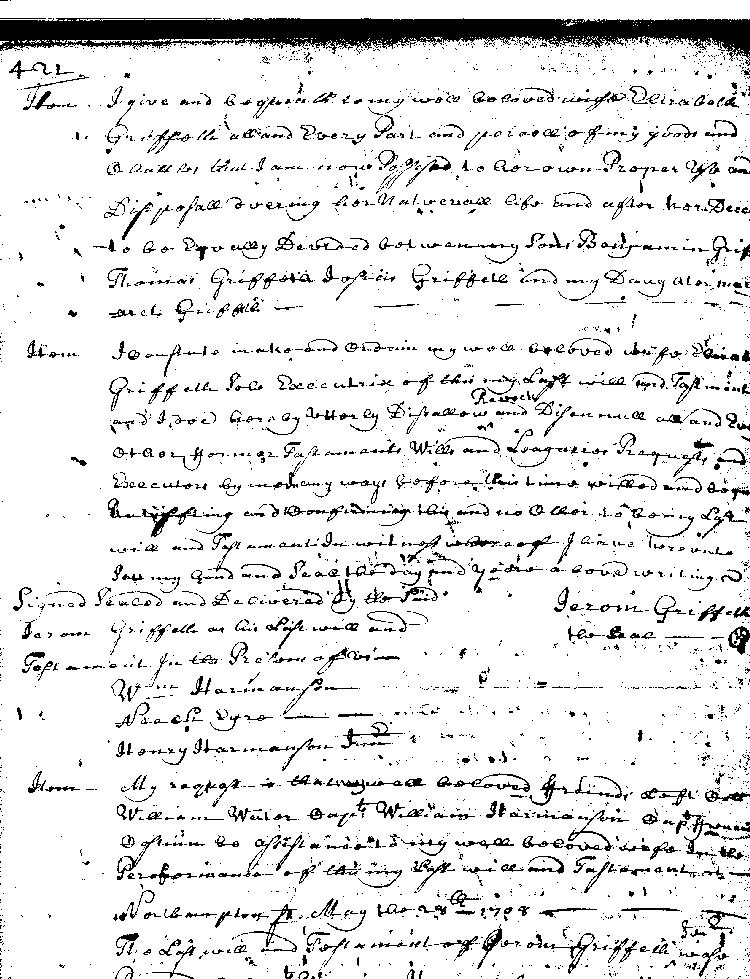 422
Item I give and bequeath to my well beloved wife Elizabeth
Griffeth all and Every Part and parcell of my goods and
Chattles that I am now Possesed to her own Proper Use an
Disposall dureing her Naturall life and after her Dece
to be Equally Devided between my Sons Benjamin Grif
Thomas Griffeth Griffeth and my Daughter mar
Griffeth
Item I Constute make and Ordain my well beloved wife Elizab
Griffeth Sole Executrix of this my Last will and Testament
Revock
and I doe hereby Utterly Disallow and Disannull all and Eve
Other former Testaments Wills and Leagacies Requests and
Executors by me in any ways before this time willed and
Rattiffying and Confirming this and no Other to be my Last
will and Testament In witness whereof I have hereunto
Sett my hand and Seale the day and yeare above writing
Signed Sealed and Delivered by the Said Jerom Griffeth
Jerom Griffeth as his Last will and the Seal
Testament In the Presence of viz
Wm Harmanson
Neech Eyre
Henry Harmanson Junr
Item My request is well beloved friends
William Water Capt William Harmanson Capt
Costin be assistance to my well beloved wife In the
Performance of this my Last will and Testament
Northampton ss. May the 28th 1708
The Last will and Testament of Jerom Griffeth